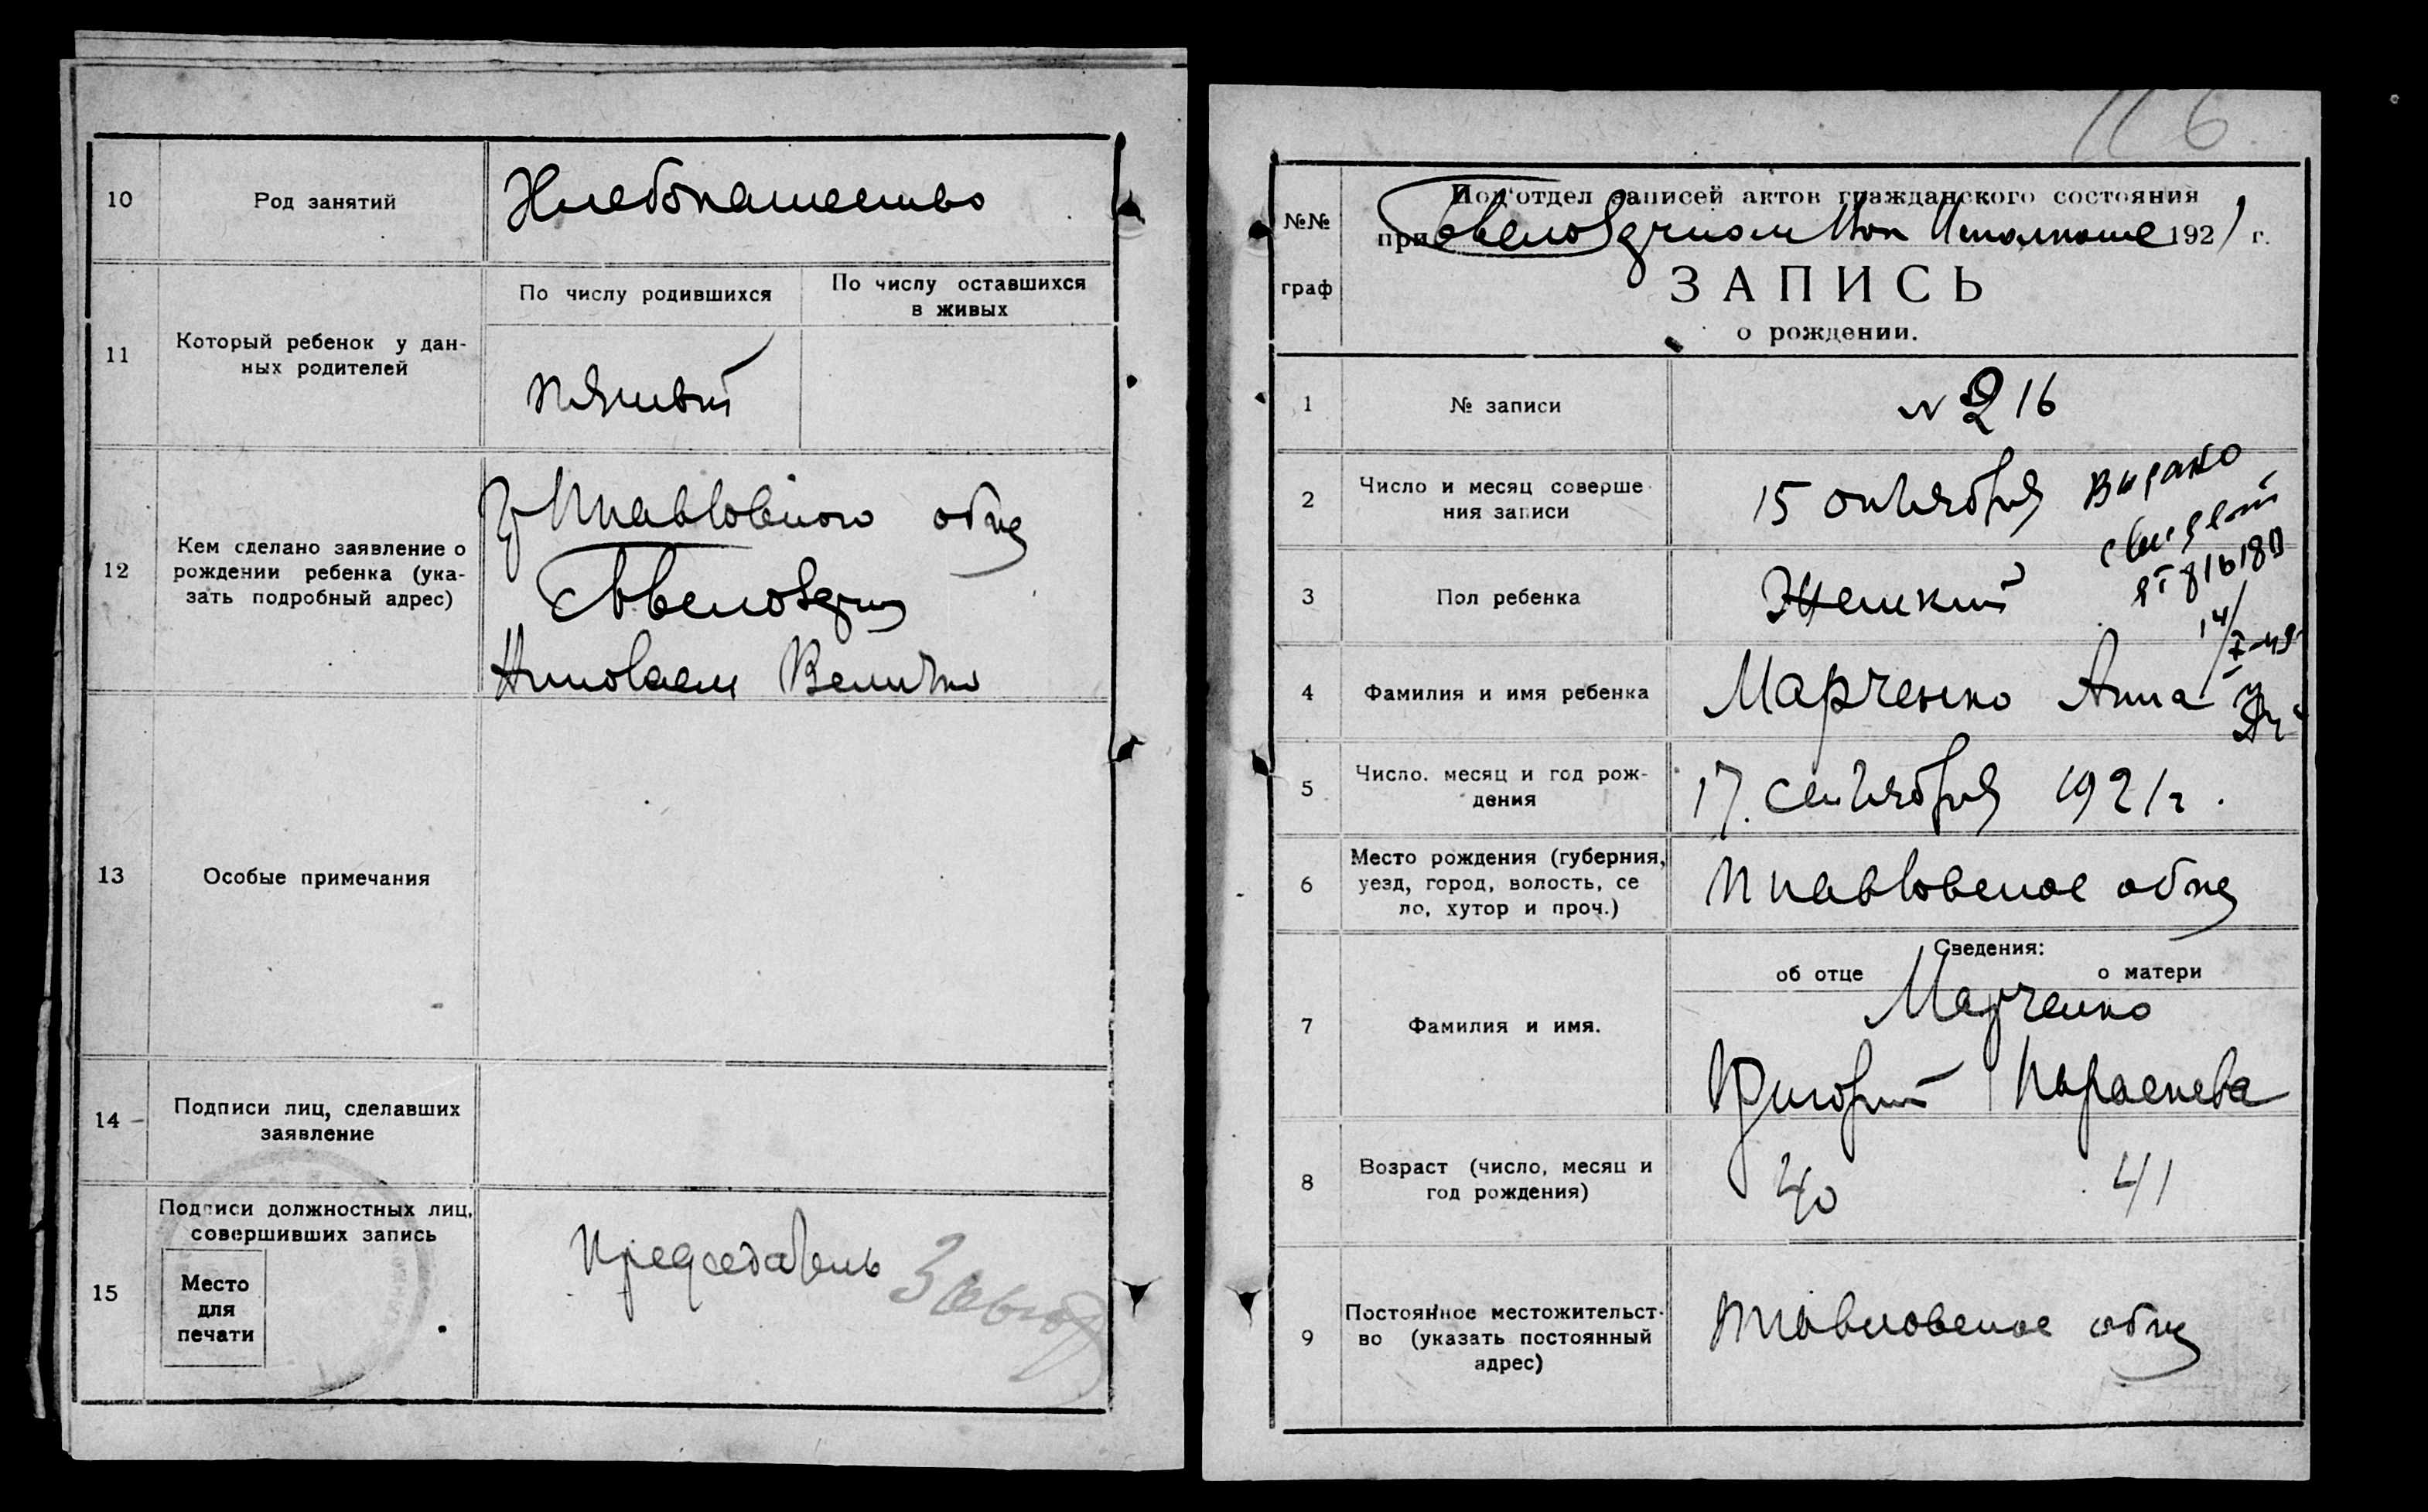 10
Род занятий
Хлебопашество
11
Который ребенок у дан-
ных родителей
По числу родившихся
По числу оставшихся
в живых
пятый
12
Кем сделано заявление о
рождении ребенка (ука-
зать подробный адрес)
обще
Николаем Величко
13
Особые примечания
14
Подписи лиц, сделавших
заявление
15
Подписи должностных лиц,
совершивших запись
Место
для
печати
Председатель
116
№№
граф
Под'отдел записей актов гражданского состояния
при Исполкоме 1921 г.
ЗАПИСЬ
о рождении.
1
№ записи
N 216
2
Число и месяц соверше-
ния записи
15 октября
Выдано
3
Пол ребенка
Женский
4
Фамилия и имя ребенка
Марченко Анна
5
Число. месяц и год рож-
дения
17. сентября 1921 г.
6
Место рождения (губерния,
уезд, город, волость, се
ло, хутор и проч.)
обще
7
Фамилия и имя.
Сведения:
об отце
о матери
Марченко
Григорий
Параскева
8
Возраст (число, месяц и
год рождения)
40
41
9
Постоянное местожительст-
во (указать постоянный
адрес)
обще